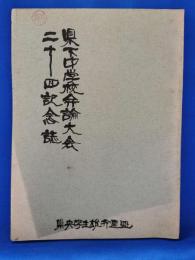 県下中学校弁論大会
二十四記念誌
県央学生雄弁連盟